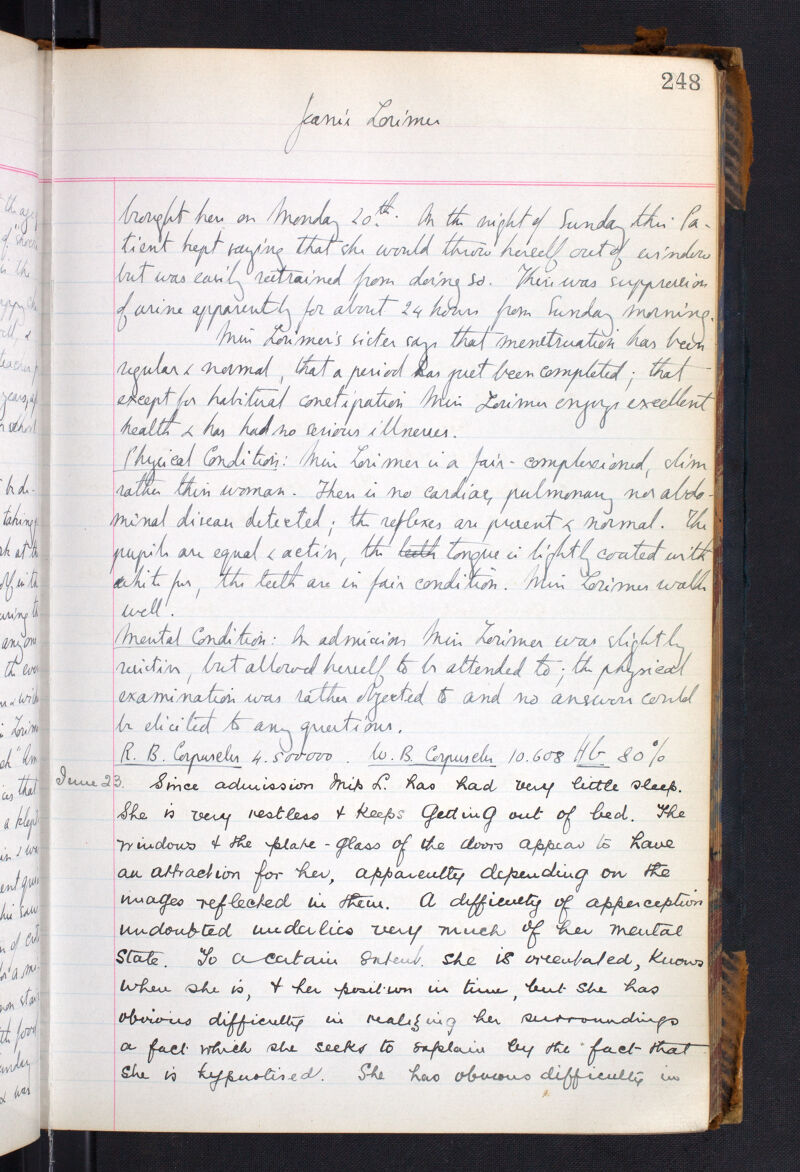 248
Jamie Lorimer
brought here on Monday 20th. On the night of Sunday this Pa-
tient kept saying that she would throw herself out of window
but was easily restrained from doing so. There was suppression
of urine apparently for about 24 hours from Sunday morning.
Miss Lorimer's sister says that menstruation has been
regular & normal, that a period has just been completed; that
except for habitual constipation Miss Lorimer enjoys excellent
health & has had no serious illnesses.
Physical Condition: Miss Lorimer is a fair-complexioned, slim
rather thin woman. There is no cardiac, pulmonary nor abdo-
minal disease detected; the reflexes are present & normal. The
pupils are equal & active, the teeth tongue is lightly coated with
white fur, the teeth are in fair condition. Miss Lorimer walks
well.
Mental Condition: On admission Miss Lorimer was slightly
resistive, but allowed herself to be attended to; the physical
examination was rather objected to and no answers could
be elicited to any questions.
R. B. Corpuscles 4.500000. W. B. Corpuscles 10.608 Hb 80%
June 23. Since admission Miss L. has had very little sleep.
She is very restless & keeps getting out of bed. The
windows & the plate-glass of the doors appear to have
an attraction for her, apparently depending on the
images reflected in them. A difficulty of apperception
undoubted underlies very much of her mental
state. To a certain extent she is orientated, knows
where she is, & her position in time, but she has
obvious difficulty in realizing her surroundings
a fact which she seeks to explain by the fact that
she is hypnotised. She has obvious difficulty in